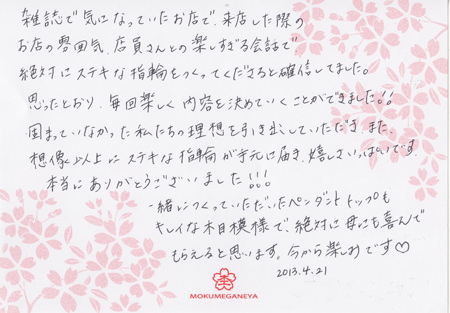 雑誌で気になっていたお店で、来店した際の
お店の雰囲気、店員さんとの楽しすぎる会話で
絶対にステキな指輪をつくってくださると確信してました。
思ったとおり、毎回楽しく内容を決めていくことができました!!
固まっていなかった私たちの理想を引き出していただき、また、
想像以上にステキな指輪が手元に届き、嬉しさいっぱいです。
本当にありがとうございました!!!
一緒につくっていただいたペンダントトップも
キレイな木目模様で、絶対に母にも喜んで
もらえると思います。今から楽しみです♡
2013.4.21
MOKUMEGANEYA